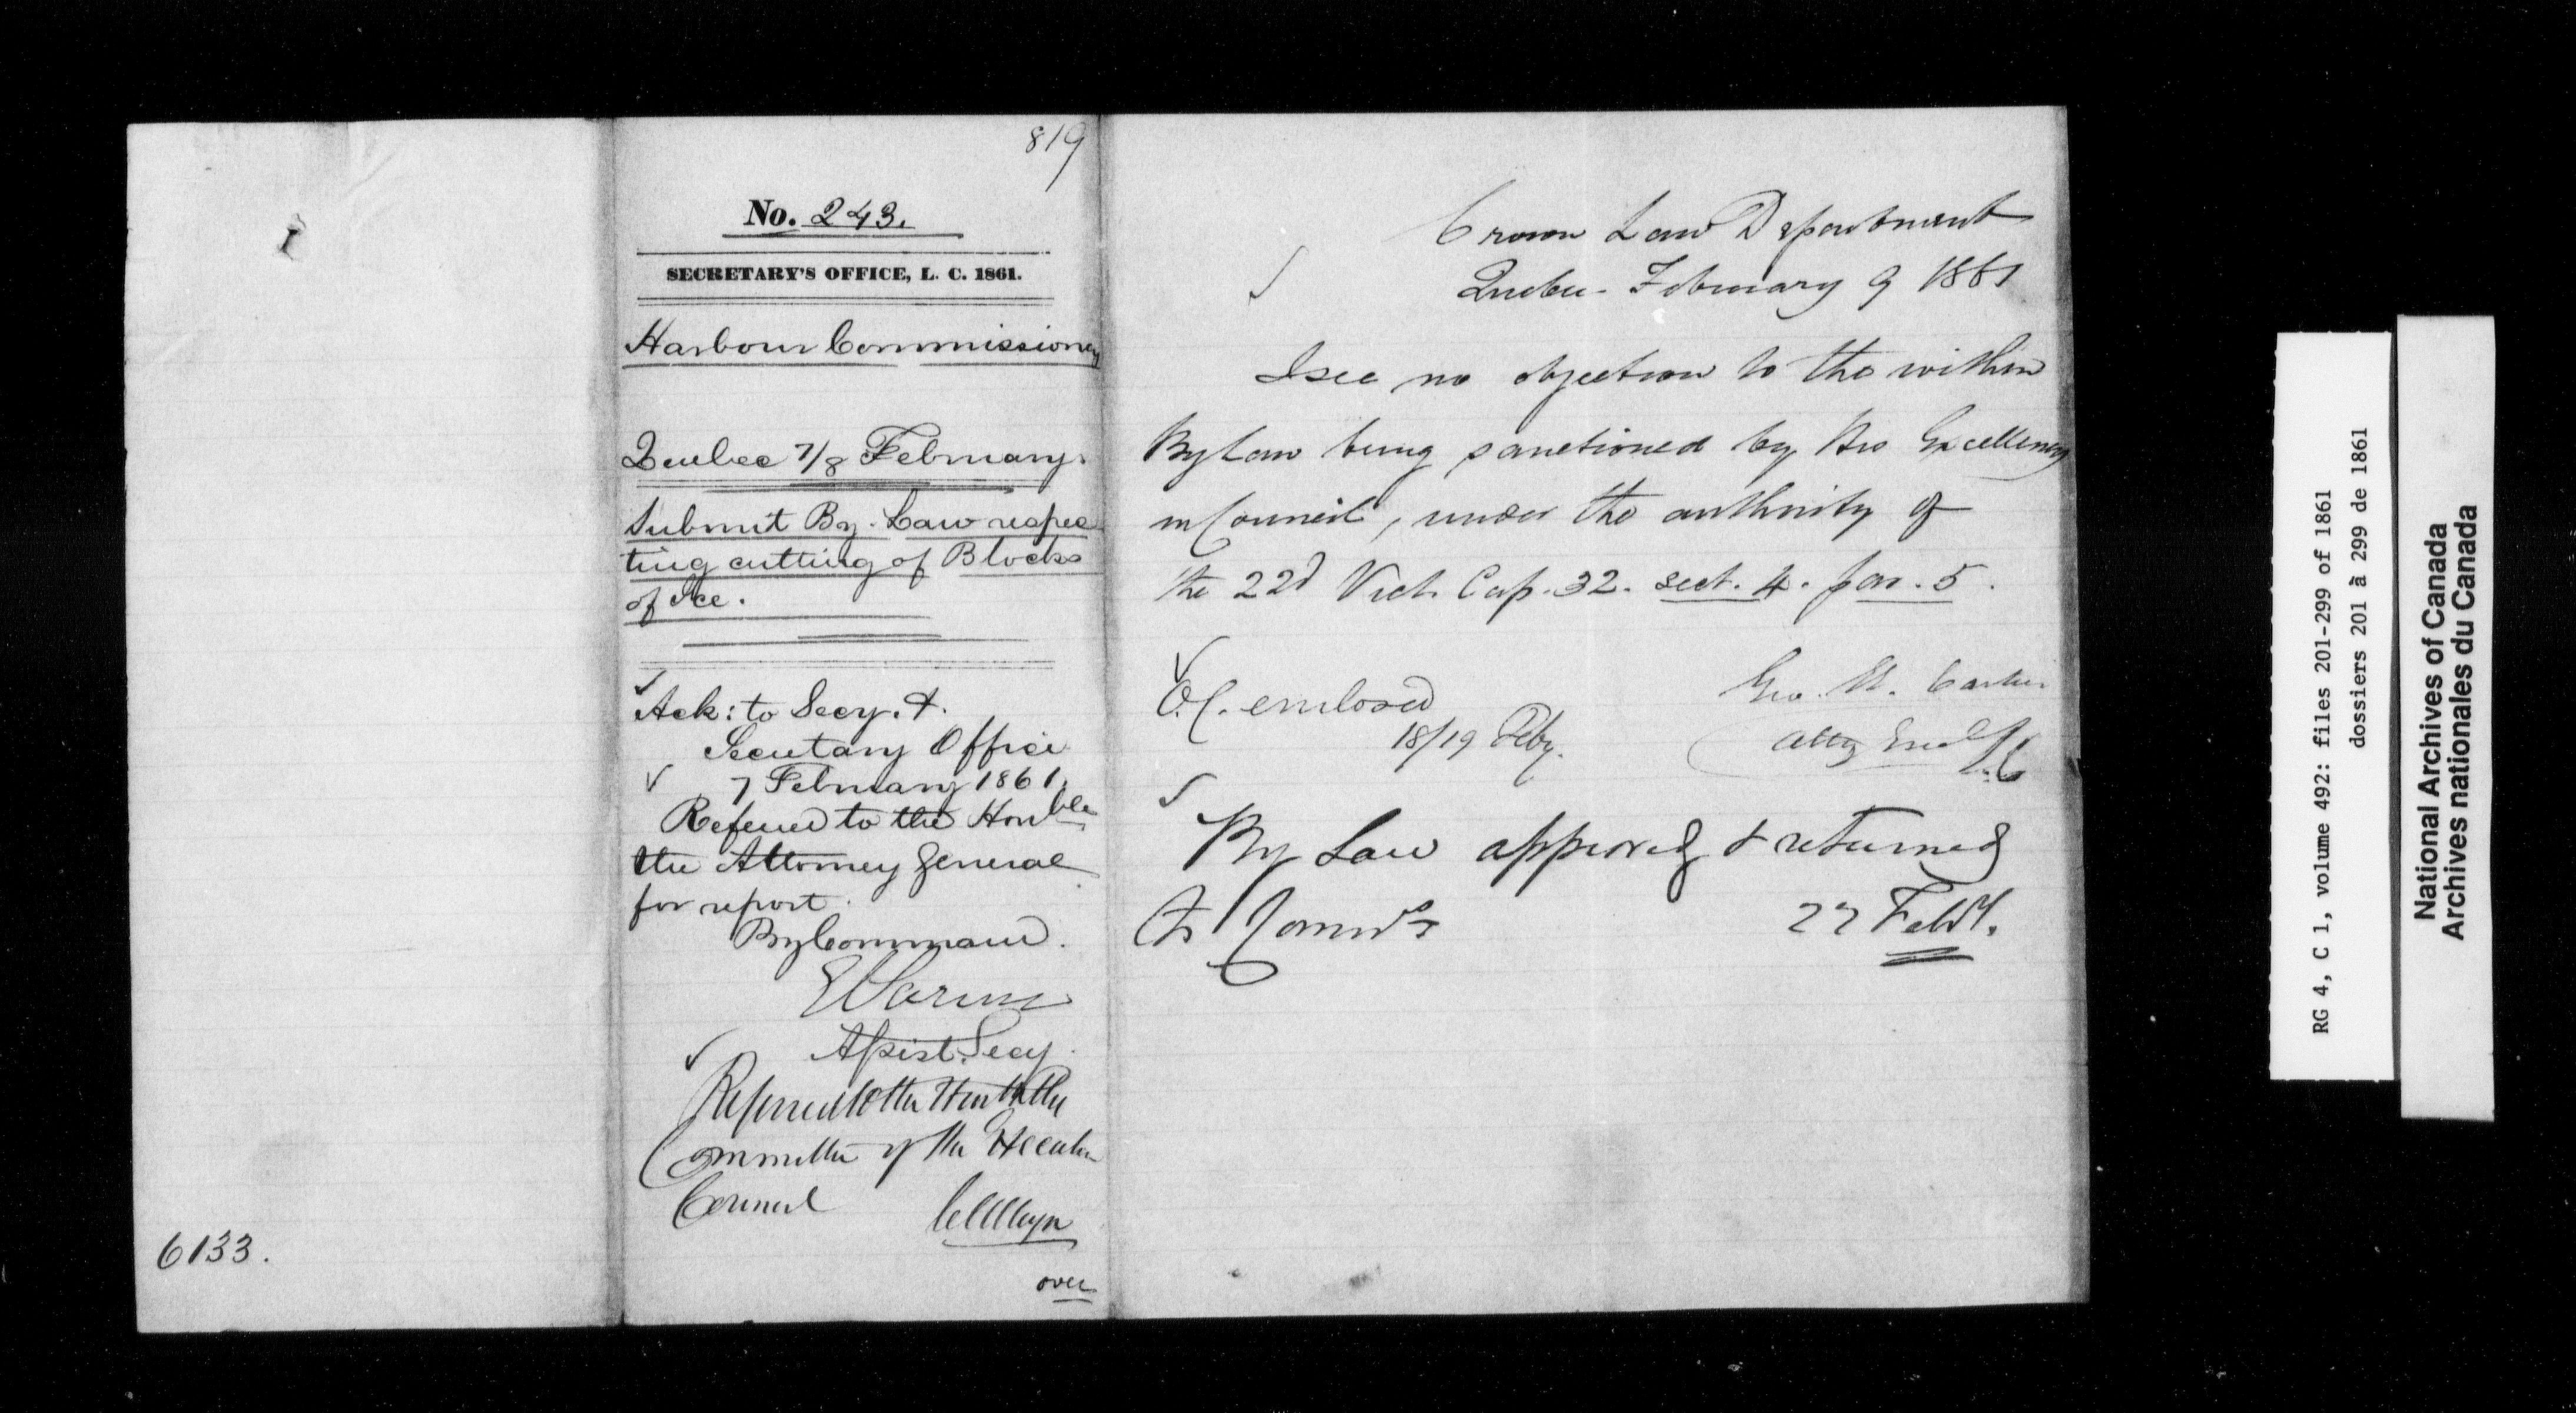 819
No. 243.
SECRETARY'S OFFICE, L. C. 1861.
Harbour Commissioners
Quebec 7/8 February.
Submit By-Law respec
ting cutting of Blocks
of Ice.
Ack: to Secy. &.
Secretary Office
7 February 1861.
Referred to the Honble
the Attorney General
for report.
By Command.
Assist. Secy.
Referred to the Honble the
Committee of the Executive
Council
C Alleyn
over
6133.
Crown Law Department
Quebec February 9 1861
I see no objection to the within
By Law being sanctioned by His Excellency
in Council, under the authority of
the 22d Vict. Cap. 32. sect. 4. par. 5.
Geo. Et. Cartier
Atty Genl L.C
O.C. enclosed
18/19 Feby.
By Law approved & returned
to Commrs 27 Feby.
RG 4, C 1, volume 492: files 201-299 of 1861
dossiers 201 à 299 de 1861
National Archives of Canada
Archives nationales du Canada